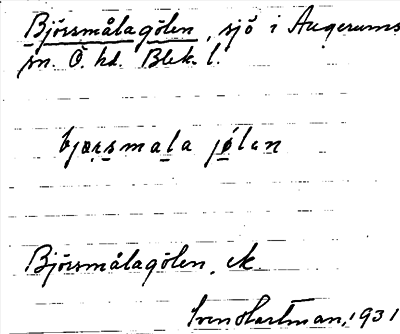 Björsmålagölen, sjö i Augerums
sn. Ö. hd. Blek. l.
bjœrsmala jölan
Björsmålagölen, ek.
Sven Hartman, 1931